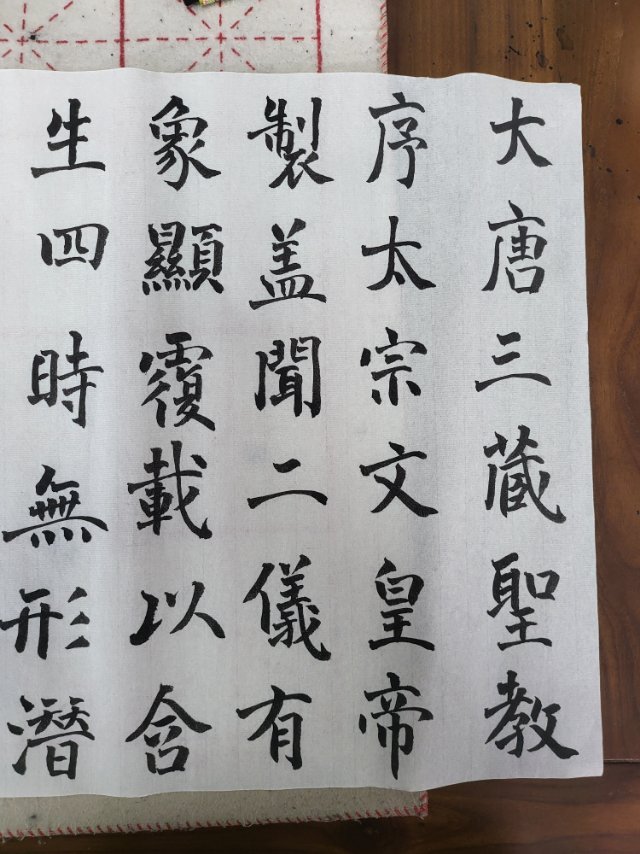 大唐三蔵聖教
序太宗文皇帝
製盖聞二儀有
象顯覆載以含
生四時無形潛